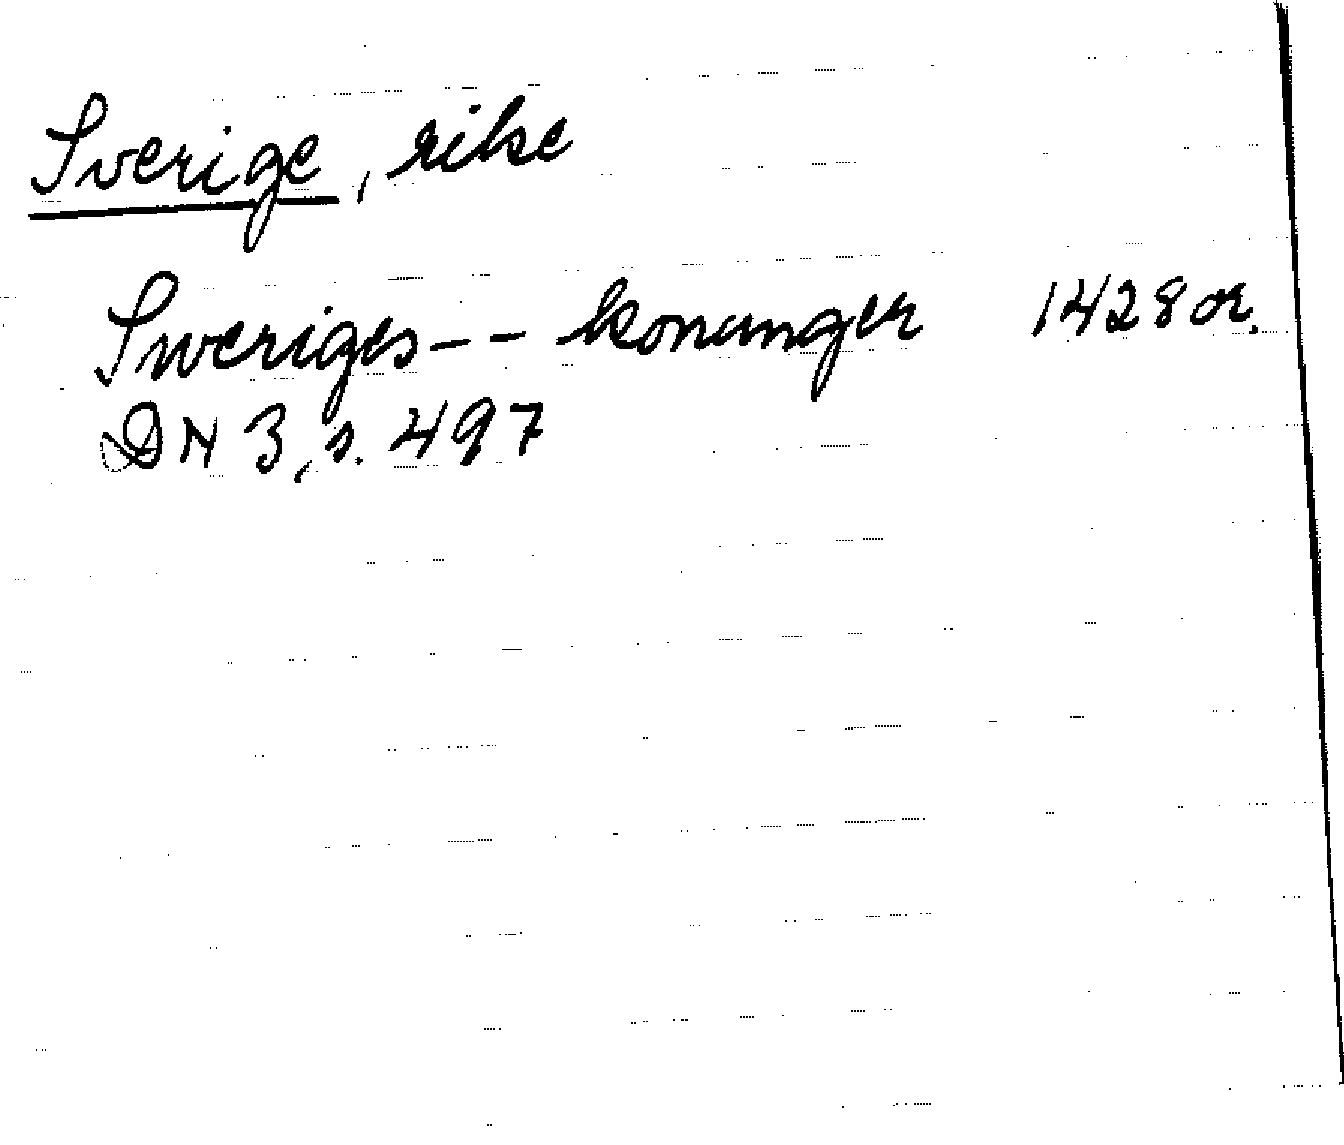 Sverige, rike
Sweriges -- konunger 1428 or.
DN 3, s. 497